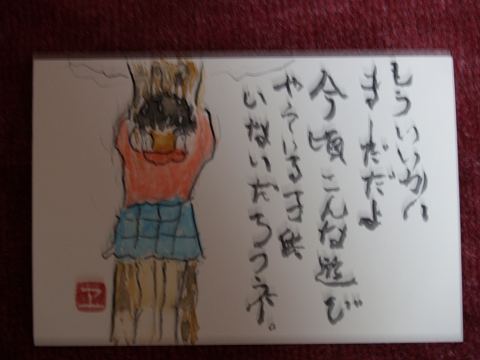 もういいかい
まーだだよ
今頃こんな遊び
やっている子供
いないだろうネ。
ヱ